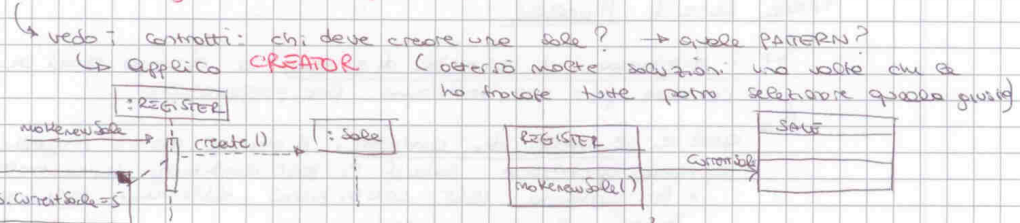 ↳ vedo i contratti: chi deve creare una sale? → quale PATTERN?
↳ applico CREATOR ( otterrò molte soluzioni una volta che le
ho trovate tutte potrò selezionare quella giusta)
:REGISTER
makenewSale
create()
: Sale
REGISTER
SALE
currentSale
makenewSale()
s.currentSale=s